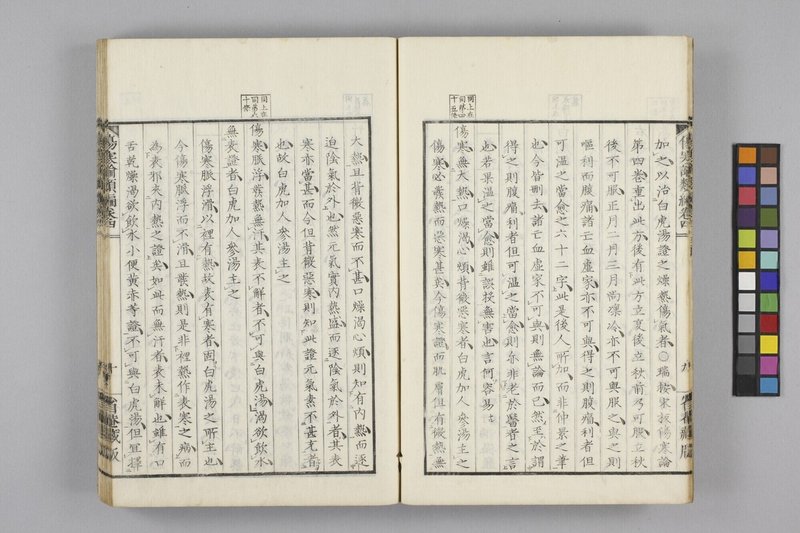 加之以治白虎湯證之燥熱傷氣者○瑞按宋板傷寒論
第四卷重出此方後有此方立夏後立秋前乃可服立秋
後不可服正月二月三月尚凜冷亦不可與服之與之則
嘔利而腹痛諸亡血虛家亦不可與得之則腹痛利者但
可溫之當愈之六十二字此是後人所加而非仲景之筆
也今皆刪去諸亡血虛家不可與則無論而已然至於謂
得之則腹痛利者但可溫之當愈則亦非老於醫者之言
也若果溫之當愈則雖誤投無害也言何容易
同上在
同第四
十五條
傷寒無大熱口燥渴心煩背微惡寒者白虎加人參湯主之
傷寒必發熱而惡寒甚矣今傷寒纔而肌膚但有微熱無
傷寒論類編卷四
九
省菴藏版
大熱且背微惡寒而不甚口燥渴心煩則知有內熱而逐
迫陰氣於外也然元氣實內熱盛而逐陰氣於外者其表
寒亦當甚而今但背微惡寒則知此證元氣素不甚充者
也故白虎加人參湯主之
同上在
同第四
十條
傷寒脈浮發熱無汗其表不解者不可與白虎湯渴欲飲水
無表證者白虎加人參湯主之
傷寒脈浮滑以裡有熱故表有寒者因白虎湯之所主也
今傷寒脈浮而不滑且發熱則是非裡熱作表寒之病而
為表邪夾內熱之證矣如此而無汗者表未解也雖有口
舌乾燥渴欲飲水小便黃赤等證不可與白虎湯但宜擇
傷寒論類編卷四
十
省菴藏版